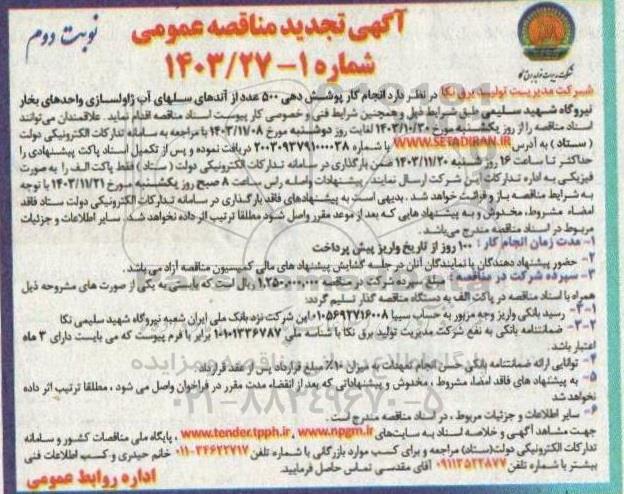 آگهی تجدید مناقصه عمومی
شماره ۱- ۱۴۰۳/۲۷
نوبت دوم
شرکت مدیریت تولید برق نکا
شرکت مدیریت تولید برق نکا در نظر دارد انجام کار پوشش دهی ۵۰۰ عدد از آندهای سلهای آب ژاولسازی واحدهای بخار
نیروگاه شهید سلیمی طبق شرایط ذیل و همچنین شرایط فنی و خصوصی کار پیوست اسناد مناقصه اقدام نماید. علاقمندان می‌توانند
اسناد مناقصه را از روز یکشنبه مورخ ۱۴۰۳/۱۰/۳۰ لغایت روز دوشنبه مورخ ۱۴۰۳/۱۱/۰۸ با مراجعه به سامانه تدارکات الکترونیکی دولت
( ستاد ) به آدرس WWW.SETADIRAN.IR با شماره ۲۰۰۳۰۹۳۷۹۱۰۰۰۰۳۸ دریافت نموده و پس از تکمیل اسناد پاکت پیشنهادی را
حداکثر تا ساعت ۱۶ روز شنبه ۱۴۰۳/۱۱/۲۰ ضمن بارگذاری در سامانه تدارکات الکترونیکی دولت ( ستاد ) فقط پاکت الف را به صورت
فیزیکی به اداره تدارکات این شرکت ارسال نمایند. پیشنهادات واصله راس ساعت ۸ صبح روز یکشنبه مورخ ۱۴۰۳/۱۱/۲۱ با توجه
به شرایط مناقصه باز و قرائت خواهد شد. بدیهی است به پیشنهادهای فاقد بارگذاری در سامانه تدارکات الکترونیکی دولت ستاد فاقد
امضاء مشروط، مخدوش و به پیشنهاد هایی که بعد از موعد مقرر واصل شود مطلقا ترتیب اثر داده نخواهد شد. سایر اطلاعات و جزئیات
مربوط در اسناد مناقصه مندرج می‌باشد.
۱- مدت زمان انجام کار : ۱۰۰ روز از تاریخ واریز پیش پرداخت
۲- حضور پیشنهاد دهندگان یا نمایندگان آنان در جلسه گشایش پیشنهاد های مالی کمیسیون مناقصه آزاد می باشد.
۳- سپرده شرکت در مناقصه : مبلغ سپرده شرکت در مناقصه ۱،۲۵۰،۰۰۰،۰۰۰ ریال است که بایستی به یکی از صورت های مشروحه ذیل
همراه با اسناد مناقصه در پاکت الف به دستگاه مناقصه گذار تسلیم گردد:
۳-۱- رسید بانکی واریز وجه مزبور به حساب سیبا ۰۱۰۵۶۹۲۷۱۶۰۰۸ این شرکت نزد بانک ملی ایران شعبه نیروگاه شهید سلیمی نکا
۳-۲- ضمانتنامه بانکی به نفع شرکت مدیریت تولید برق نکا با شناسه ملی ۱۰۱۰۱۳۳۶۷۸۷ برابر با فرم پیوست که می بایست دارای ۳ ماه
اعتبار باشد.
۴- توانایی ارائه ضمانتنامه بانکی حسن انجام تعهدات به میزان ۱۰٪ مبلغ قرارداد پس از عقد قرارداد.
۵- به پیشنهاد های فاقد امضا، مشروط ، مخدوش و پیشنهاداتی که بعد از انقضاء مدت مقرر در فراخوان واصل می شود ، مطلقا ترتیب اثر داده
نخواهد شد
۶- سایر اطلاعات و جزئیات مربوط ، در اسناد مناقصه مندرج است.
جهت مشاهد آگهی و خلاصه اسناد به سایت‌های www.tender.tpph.ir، www.npgm.ir ، پایگاه ملی مناقصات کشور و سامانه
تدارکات الکترونیکی دولت(ستاد) مراجعه و برای کسب موارد بازرگانی با شماره تلفن ۳۴۶۲۲۷۱۷-۰۱۱ خانم حیدری و کسب اطلاعات فنی
بیشتر با شماره تلفن ۰۹۱۱۳۵۲۳۸۷۷ آقای مقدسی تماس حاصل فرمایید.
اداره روابط عمومی
پایگاه اطلاع رسانی مناقصه و مزایده
۰۲۱-۸۸۳۴۹۶۷۰-۵